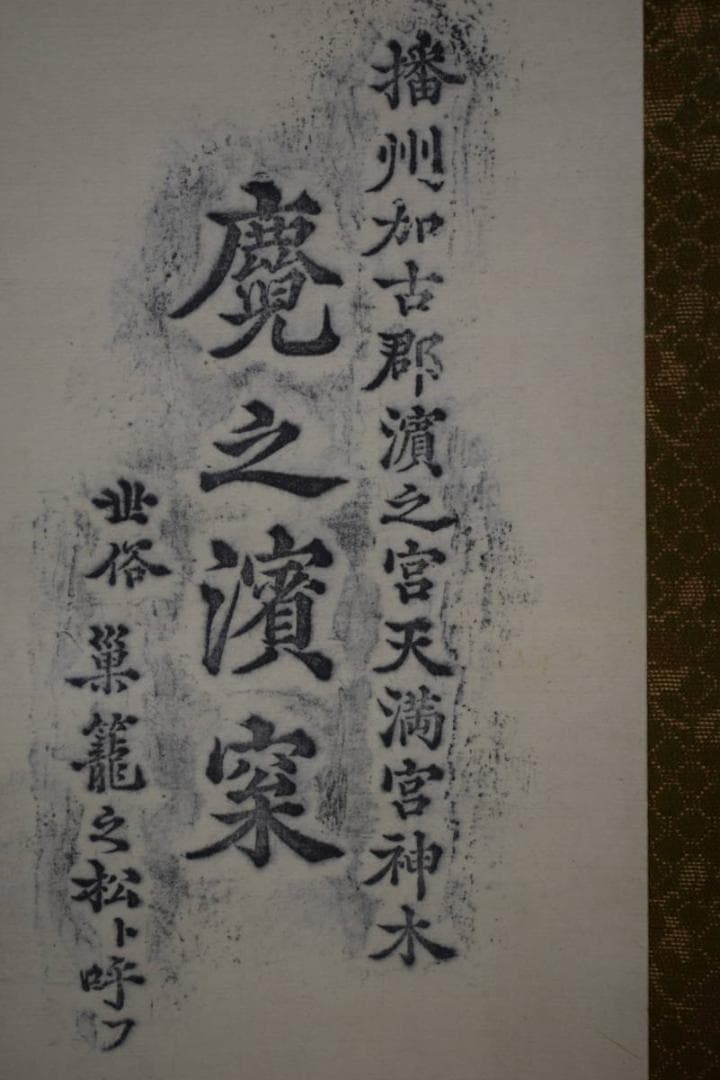 播州加古郡濱之宮天満宮神木
麑之濱
世俗 巣籠之松ト呼フ